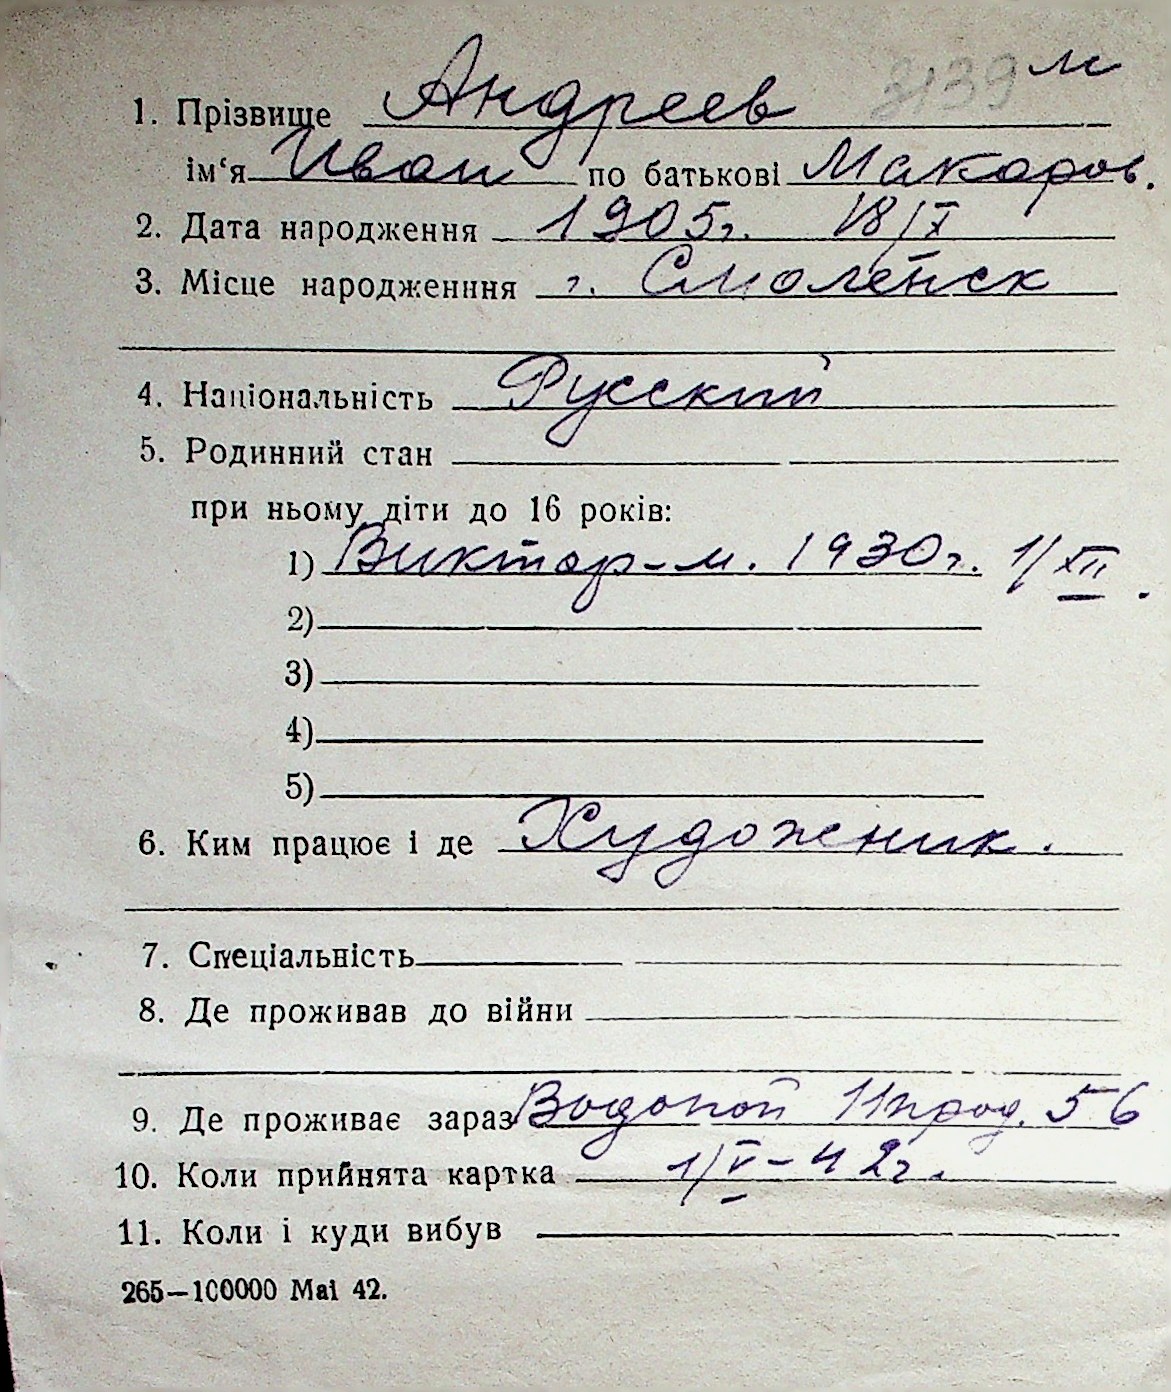 1. Прізвище Андреев 3139 м
ім‘я Иван по батькові Макаров.
2. Дата народження 1905г. 18/X
3. Місце народженння г. Смоленск
4. Національність Русский
5. Родинний стан
при ньому діти до 16 років:
1) Виктор-м. 1930г. 1/XII.
2)
3)
4)
5)
6. Ким працює і де Художник.
7. Спеціальність
8. Де проживав до війни
9. Де проживає зараз Водопой 11 прод. 56
10. Коли прийнята картка 1/V-42г.
11. Коли і куди вибув
265—100000 Mai 42.